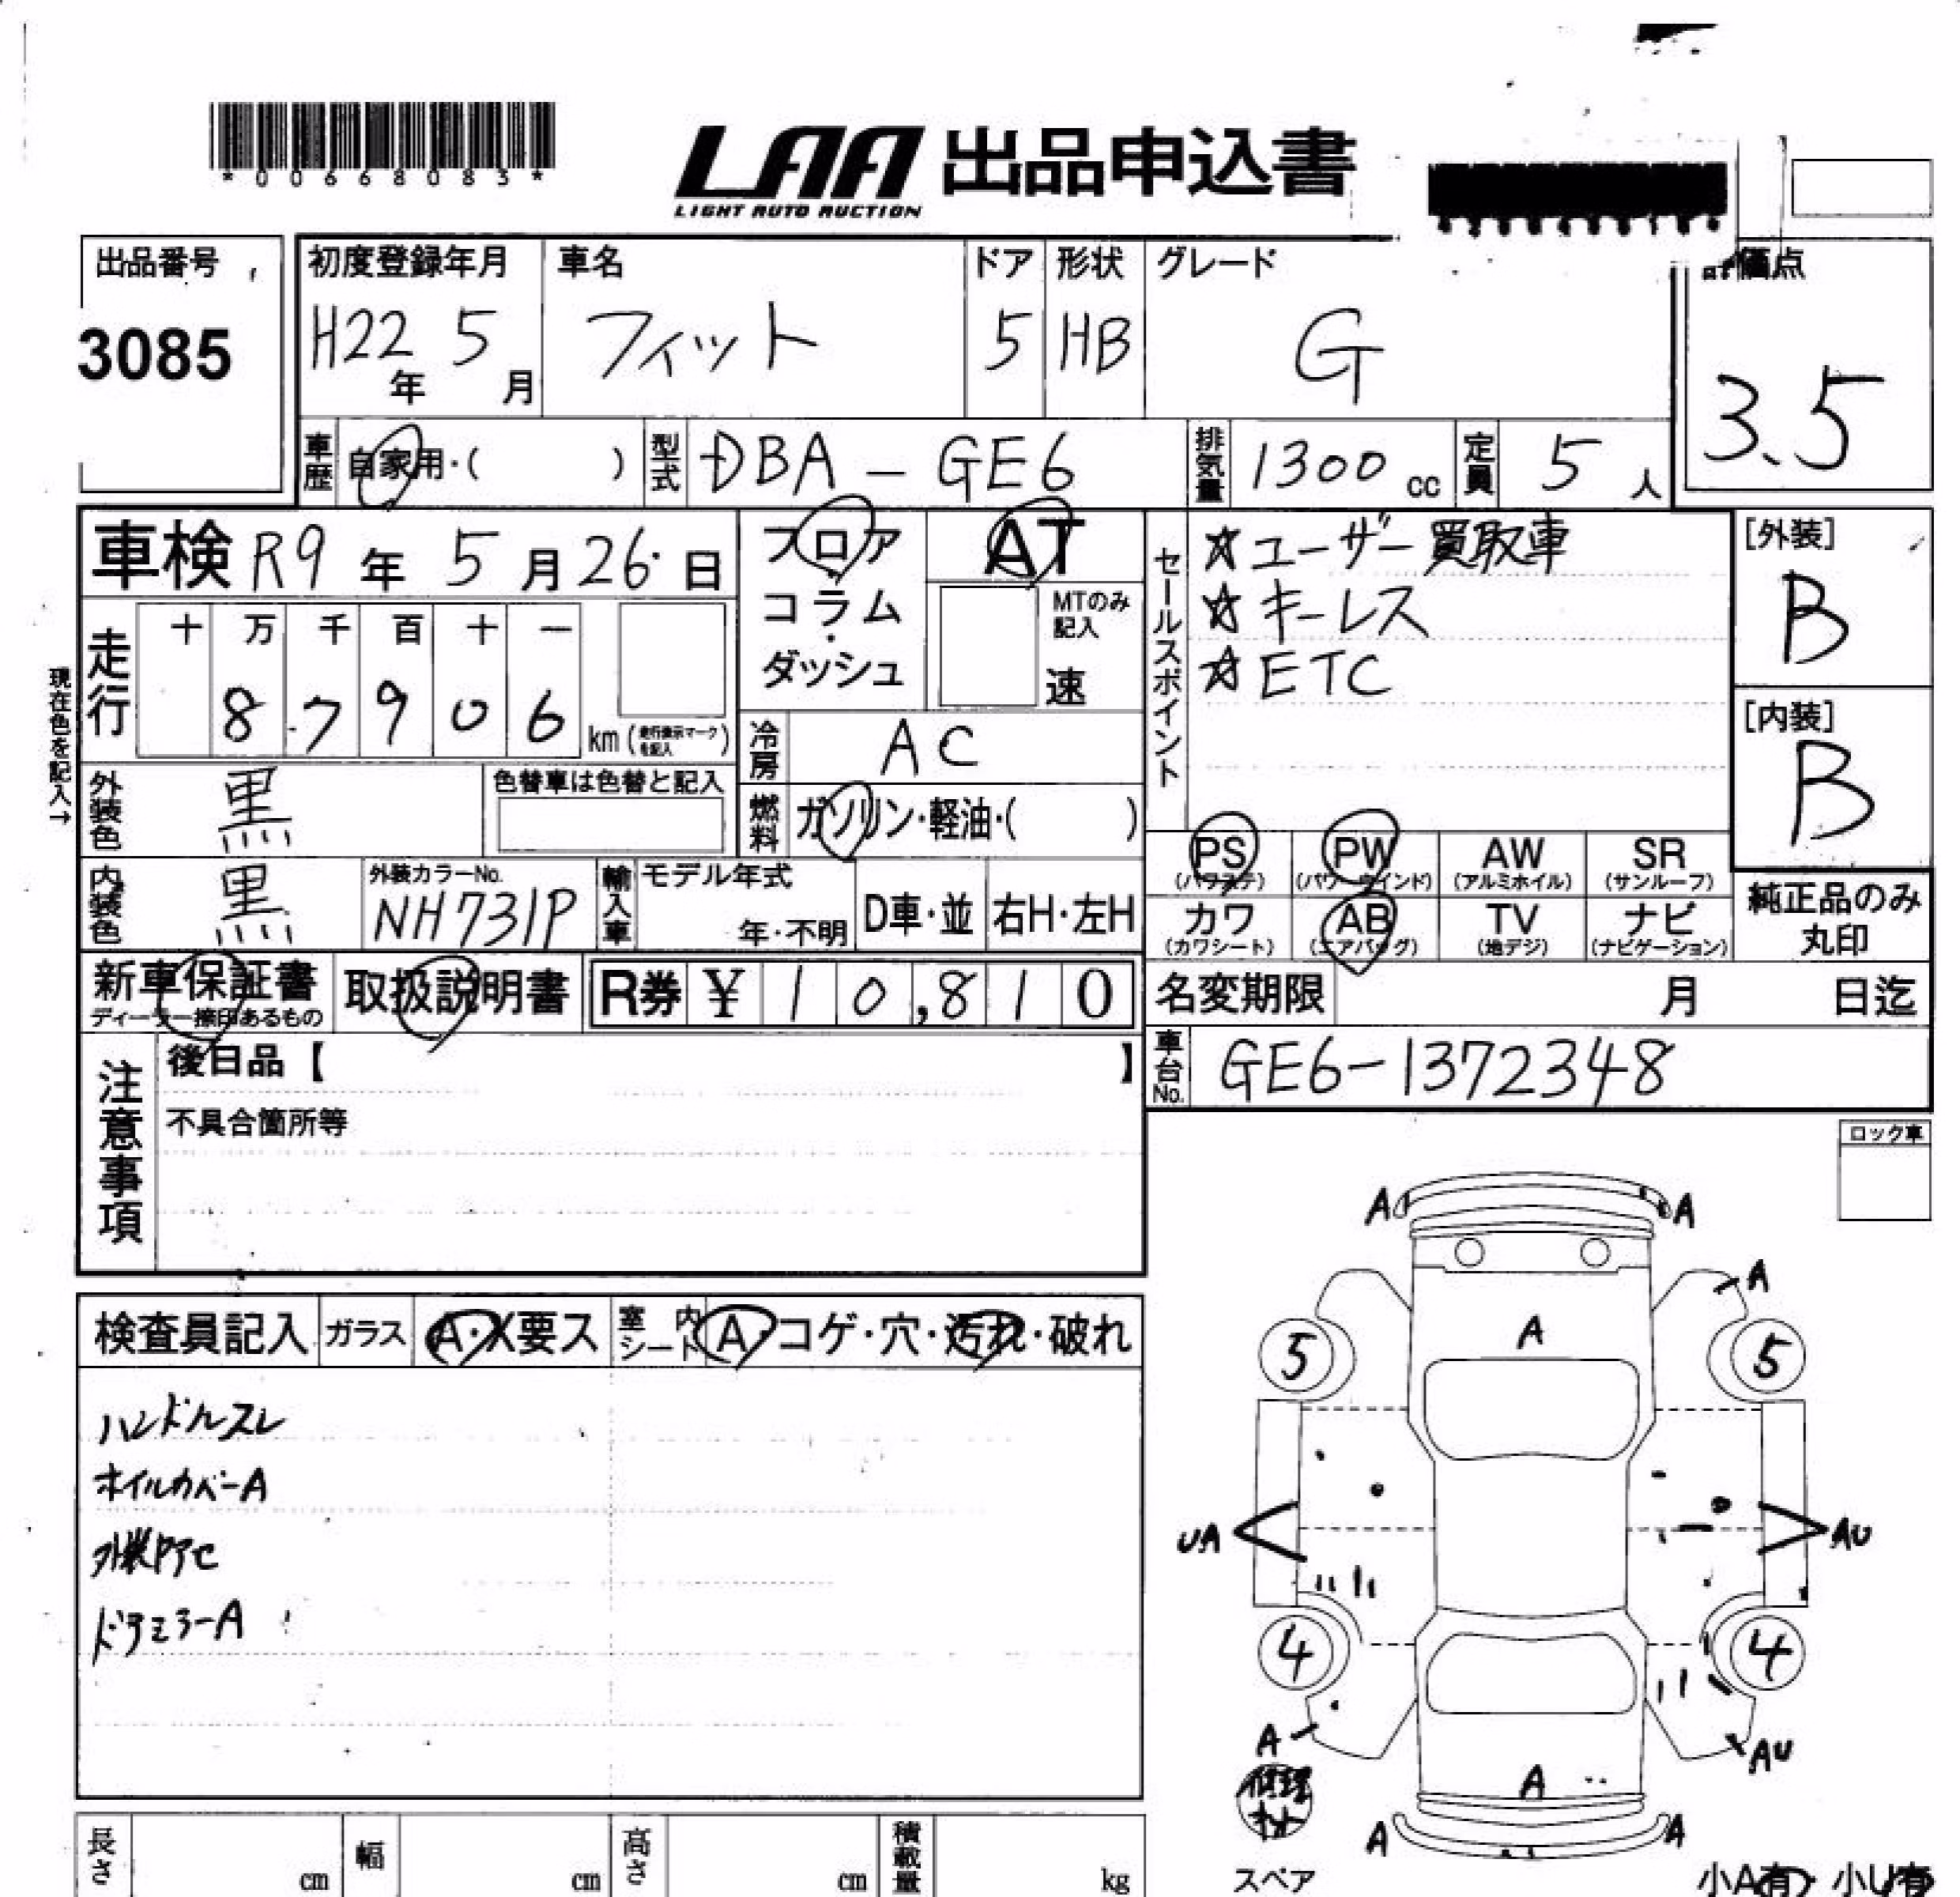 *00668083*
LAA 出品申込書
LIGHT AUTO AUCTION
出品番号
3085
初度登録年月
H22年 5月
車名
フィット
ドア
5
形状
HB
グレード
G
価点
3.5
車歴 自家用・( )
型式 DBA-GE6
排気量 1300cc
定員 5人
車検 R9年 5月26日
フロア・コラム・ダッシュ
AT
MTのみ記入
速
セールスポイント
☆ユーザー買取車
☆キーレス
☆ETC
[外装]
B
[内装]
B
現在色を記入→
走行
十 万 千 百 十 一
8 7 9 0 6 km (走行表示マークを記入)
冷房 AC
燃料 ガソリン・軽油・( )
外装色 黒
色替車は色替と記入
内装色 黒
外装カラーNo.
NH731P
輸入車 モデル年式
年・不明
D車・並 右H・左H
PS (パワステ)
PW (パワーウインド)
AW (アルミホイル)
SR (サンルーフ)
カワ (カワシート)
AB (エアバッグ)
TV (地デジ)
ナビ (ナビゲーション)
純正品のみ丸印
新車保証書
取扱説明書
R券 ¥10,810
名変期限 月 日迄
車台No. GE6-1372348
注意事項
後日品【 】
不具合箇所等
ロック車
検査員記入
ガラス A・X要ス
室内シート A・コゲ・穴・汚れ・破れ
ハンドルスレ
ホイルカバーA
外装アセ
ドアミラーA
A A
A
A
5 5
UA AU
4 4
A AU
A
A A
スペア
小A有・小U有
長さ cm
幅 cm
高さ cm
積載量 kg